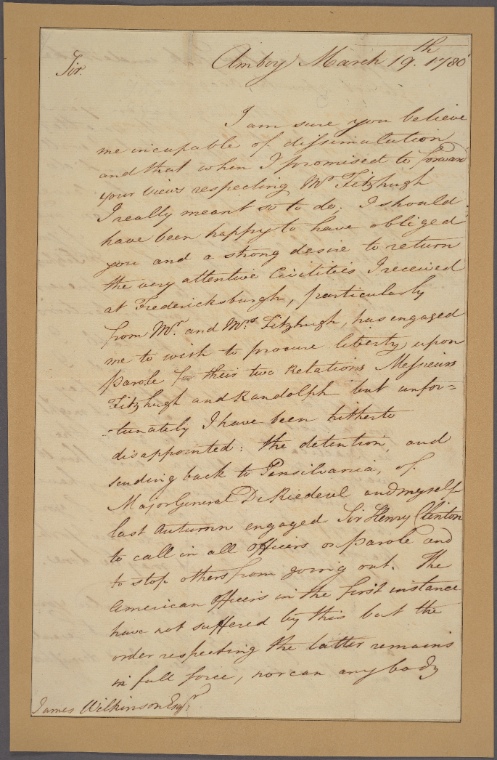 Amboy March 19.th 1780
Sir.
I am sure you believe
me incapable of dissimulation
and that when I promised to forward
your views respecting Mr Fitzhugh
I really meant so to do. I should
have been happy to have obliged
you and a strong desire to return
the very attentive Civilities I received
at Fredericksburgh, particularly
from Mr. and Mrs. Fitzhugh, has engaged
me to wish to procure liberty upon
parole for their two Relations Messieurs
Fitzhugh and Randolph but unfor=
=tunately I have been hitherto
disappointed: the detention and
sending back to Pensilvania, of
Major General De Riedesel and myself
last Autumn engaged Sir Henry Clinton
to call in all officers on parole and
to stop others from going out. The
American Officers in the first instance
have not suffered by this but the
order respecting the latter remains
in full force, nor can any body
James Wilkinson Esqr.